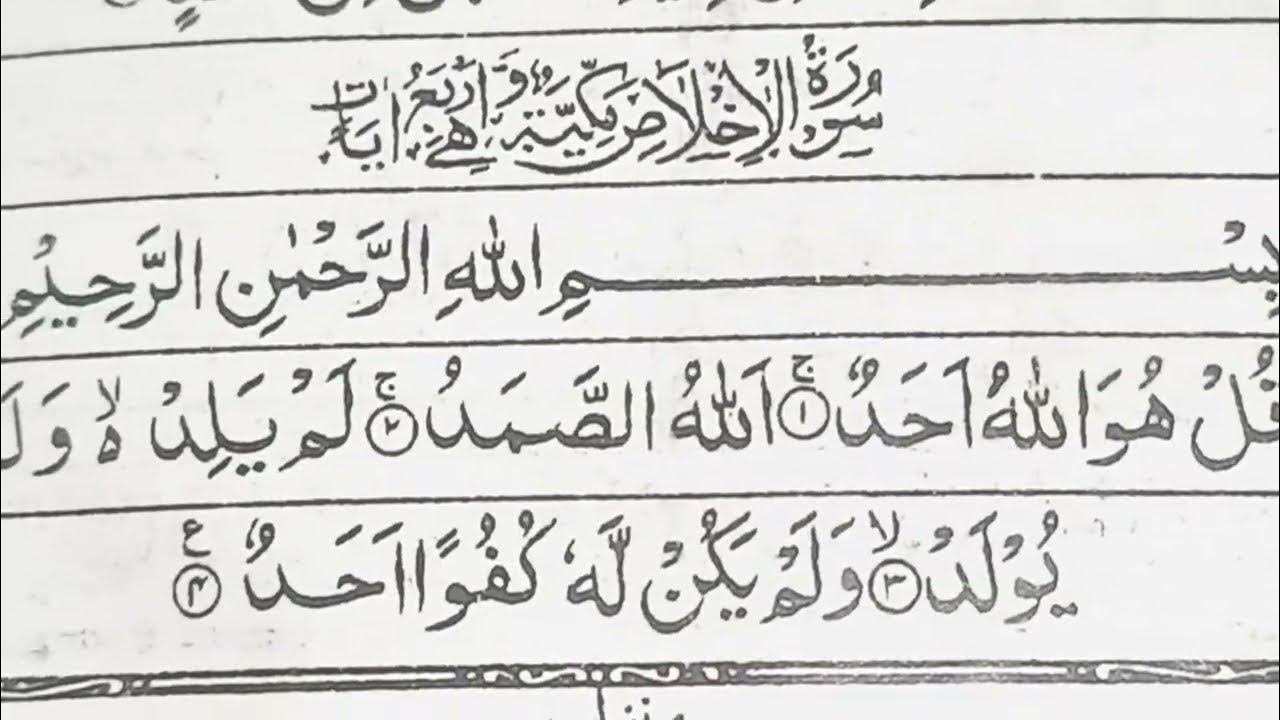 سُورَةُ الْاِخْلَاصِ مَكِّيَّةٌ وَّهِيَ اَرْبَعُ اٰيَاتٍ
بِسْمِ اللهِ الرَّحْمٰنِ الرَّحِيْمِ
قُلْ هُوَ اللهُ اَحَدٌ ۚ﴿۱﴾ اَللهُ الصَّمَدُ ۚ﴿۲﴾ لَمْ يَلِدْ ۙ۵ وَلَ
يُوْلَدْ ۙ﴿۳﴾ وَلَمْ يَكُنْ لَّهٗ كُفُوًا اَحَدٌ ﴿۴﴾ ع